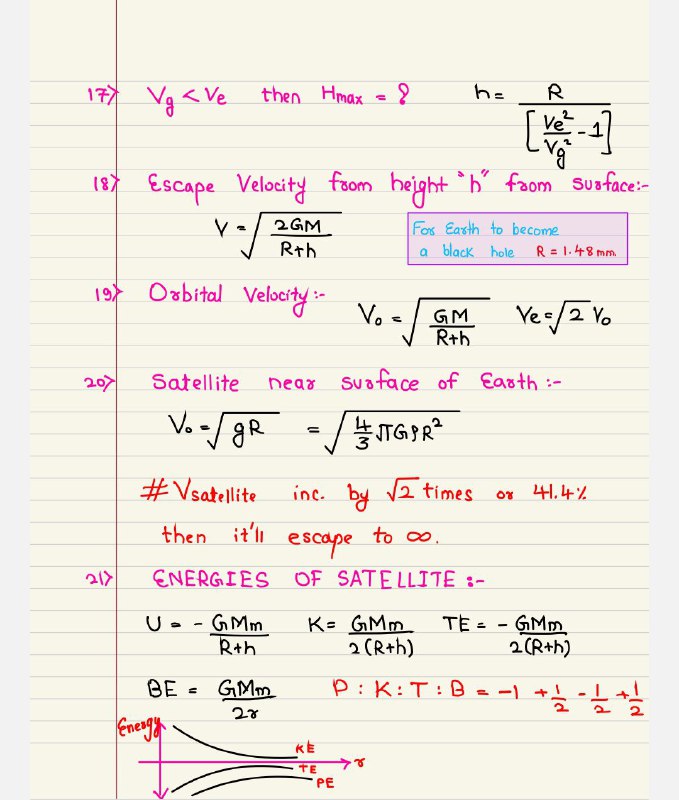 17> Vg < Ve then Hmax = ? h = R / [Ve²/Vg² - 1]
18> Escape Velocity from height "h" from surface:-
V = √(2GM / R+h)
For Earth to become
a black hole R = 1.48 mm
19> Orbital Velocity :-
Vo = √(GM / R+h) Ve = √2 Vo
20> Satellite near surface of Earth :-
Vo = √gR = √(4/3 πGρR²)
# Vsatellite inc. by √2 times or 41.4%
then it'll escape to ∞.
21> ENERGIES OF SATELLITE :-
U = - GMm / R+h K = GMm / 2(R+h) TE = - GMm / 2(R+h)
BE = GMm / 2r P : K : T : B = -1 + 1/2 - 1/2 + 1/2
Energy
KE
r
TE
PE